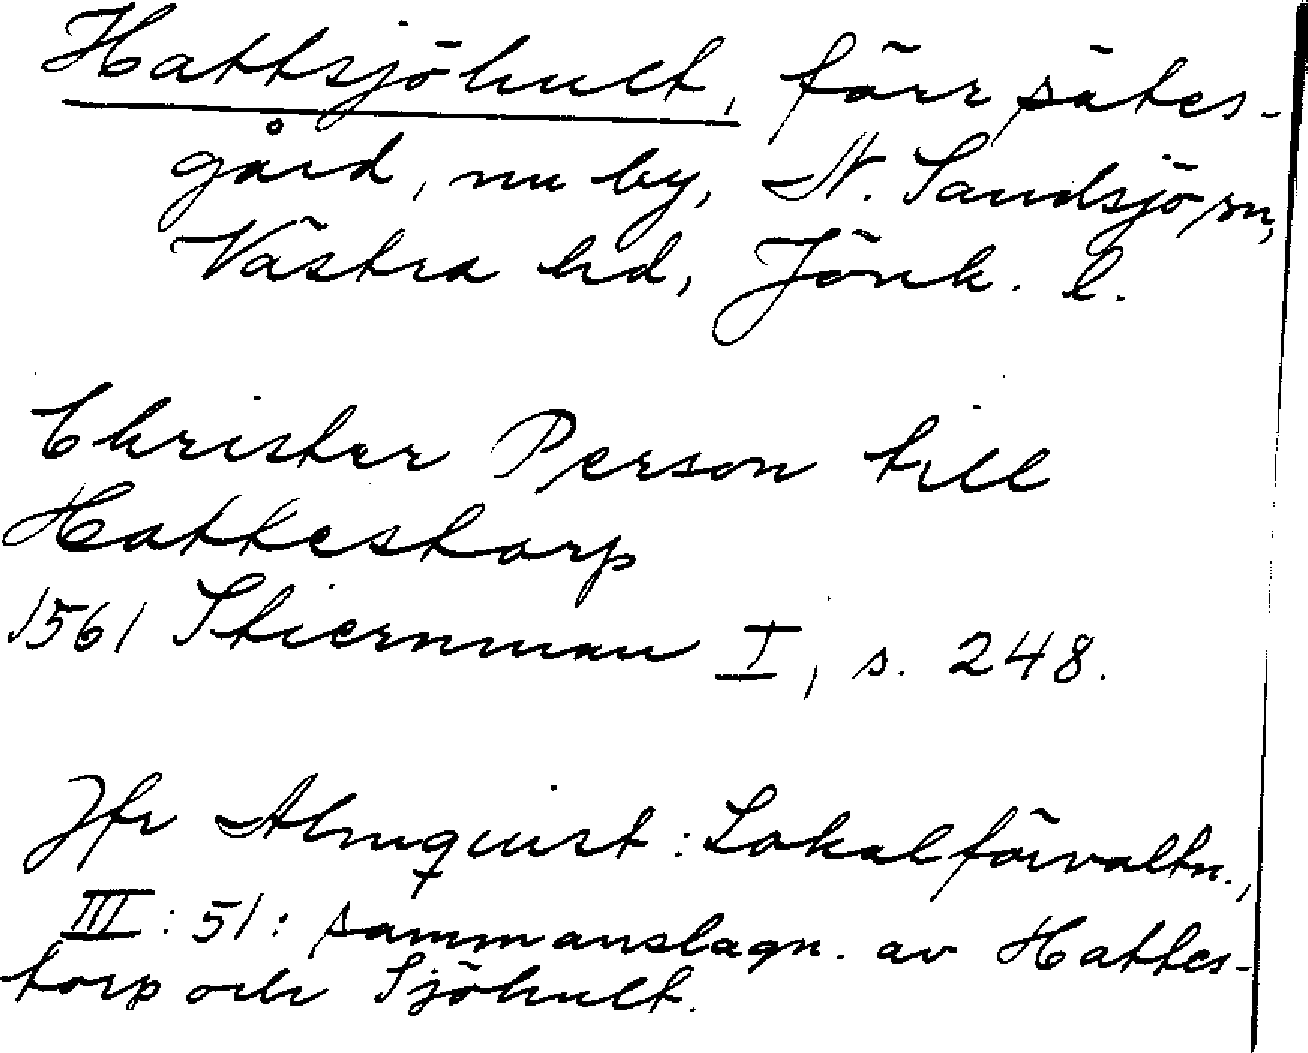 Hattsjöhult, förr sätes-
gård, nu by, N. Sandsjö sn,
Västra hd, Jönk. l.
Christer Person till
Hattestorp
1561 Stiernman I, s. 248.
Jfr Almquist: Lokalförvaltn.,
III: 51: sammanslagn. av Hattes-
torp och Sjöhult.